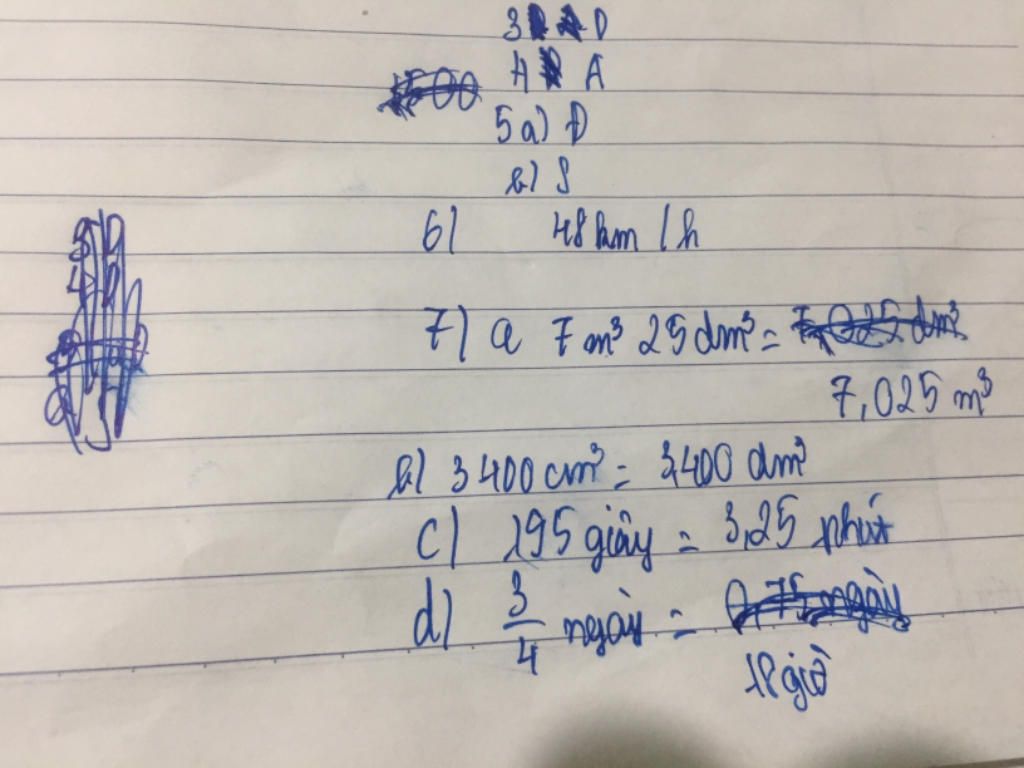 3 D
4 A
5a) Đ
b) S
6) 48 km/h
7) a 7 m³ 25 dm³ =
7,025 m³
b) 3400 cm³ = 3,400 dm³
c) 195 giây = 3,25 phút
d) 3/4 ngày =
18 giờ